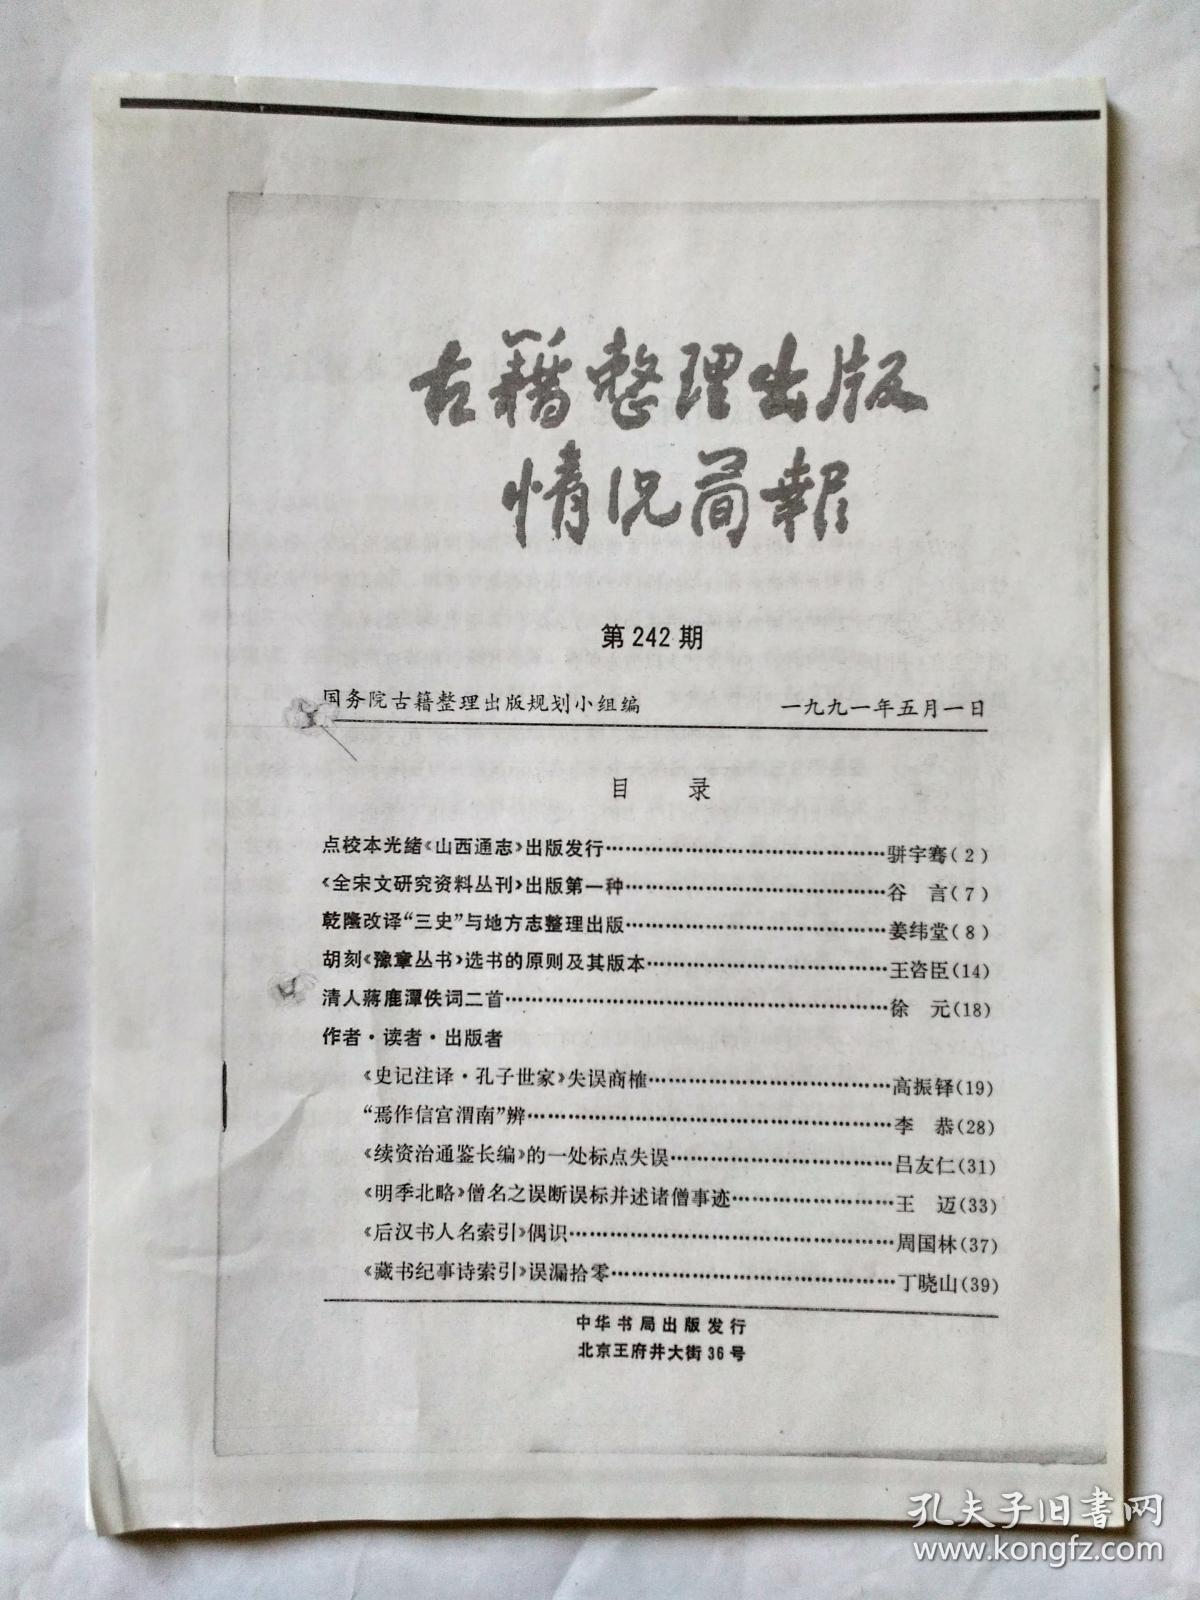 古籍整理出版
情况简报
第242期
国务院古籍整理出版规划小组编 一九九一年五月一日
目 录
点校本光绪《山西通志》出版发行……………………………………骈宇骞(2)
《全宋文研究资料丛刊》出版第一种……………………………………谷 言(7)
乾隆改译“三史”与地方志整理出版……………………………………姜纬堂(8)
胡刻《豫章丛书》选书的原则及其版本…………………………………王咨臣(14)
清人蒋鹿潭佚词二首……………………………………………………徐 元(18)
作者·读者·出版者
《史记注译·孔子世家》失误商榷………………………………高振铎(19)
“焉作信宫渭南”辨………………………………………………李 恭(28)
《续资治通鉴长编》的一处标点失误……………………………吕友仁(31)
《明季北略》僧名之误断误标并述诸僧事迹……………………王 迈(33)
《后汉书人名索引》偶识…………………………………………周国林(37)
《藏书纪事诗索引》误漏拾零……………………………………丁晓山(39)
中华书局出版发行
北京王府井大街36号
孔夫子旧书网
www.kongfz.com